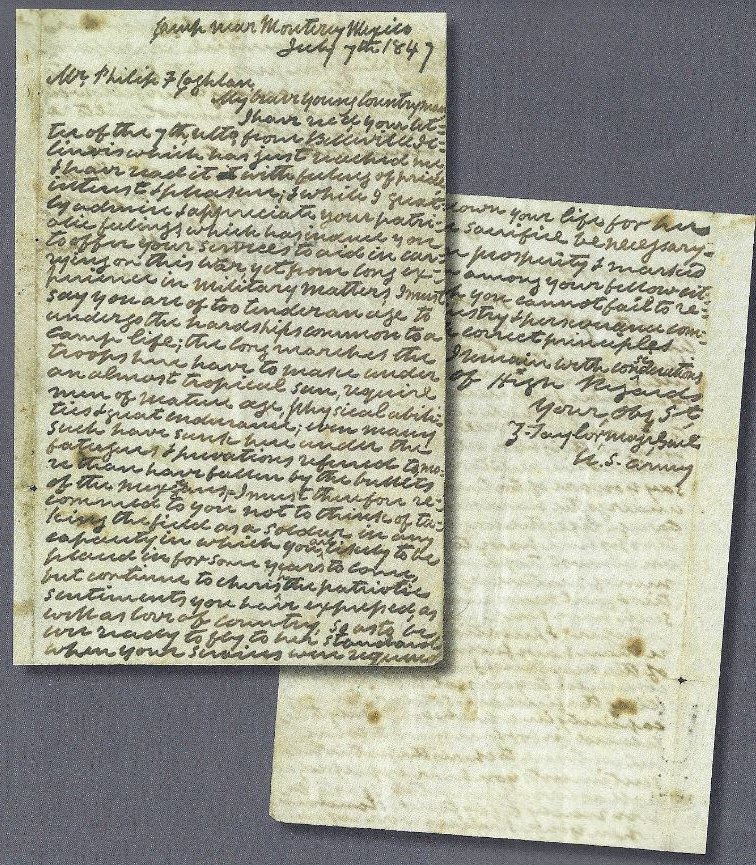 Camp near Monterey Mexico
July 7th 1847
Mr. Philip F Coghlan
My brave young Countryman
I have recd your let-
ter of the 7th ulto from Belleville Il-
linois which has just reached me
I have read it with feelings of pride
interest & pleasure, & while I great-
ly admire & appreciate your patri-
otic feelings which has induced you
to offer your services to aid in car-
rying on this war, yet from long ex-
perience in military matters I must
say you are of too tender an age to
undergo the hardships common to a
camp life; the long marches the
troops here have to make under
an almost tropical sun, require
men of mature age, physical abili-
ties & great endurance; even many
such have sunk here under the
fatigues & privations refered to, mo-
re than have fallen by the bullets
of the Mexicans; I must therefore re-
commend to you not to think of ta-
king the field as a soldier in any
capacity in which you, likely to be
placed in for some years to come,
but continue to cherish the patriotic
sentiments you have expressed as
well as love of country, so as to be
ever ready to fly to her standard
when your services were required
down your life for her
sacrifice be necessary-
prosperity & marked
among your fellow cit-
you cannot fail to re-
industry & perseverance com-
correct principles
I remain with considerations
of High Respect
Your Obt St
Z. Taylor Maj. Genl
U.S. Army